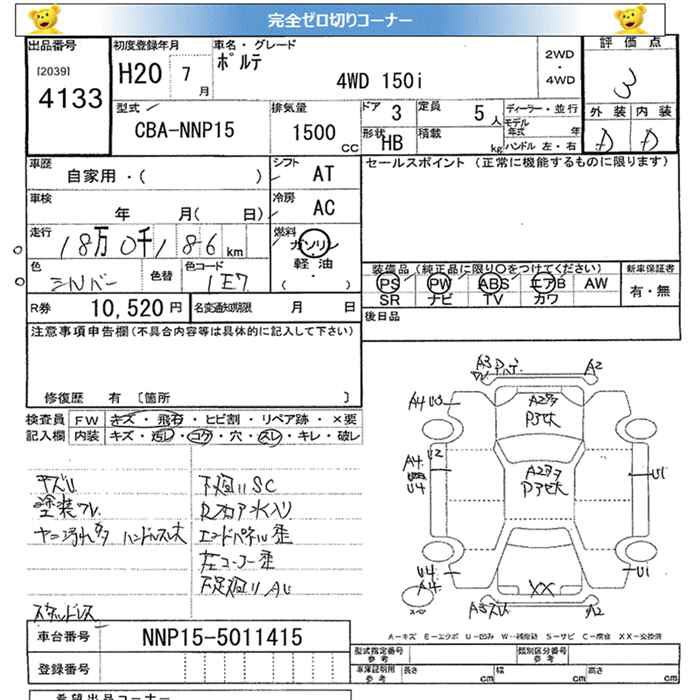 完全ゼロ切りコーナー
出品番号 初度登録年月 車名・グレード 評価点
[2039] 4133 H20 7月 ポルテ 4WD 150i 2WD・4WD 3
外装 内装
D D
型式 CBA-NNP15 排気量 1500cc ドア 3 定員 5人 ディーラー・並行
形状 HB 積載 kg モデル年式 年
ハンドル 左・右
車歴 自家用・( ) シフト AT セールスポイント(正常に機能するものに限ります)
車検 年 月( 日) 冷房 AC
走行 18万0千186km 燃料 ガソリン
軽油
( )
色 シルバー 色替 色コード 1E7
装備品(純正品に限り○をつけてください) 新車保証書
PS PW ABS エアB AW 有・無
SR ナビ TV カワ
R券 10,520円 名変通知期限 月 日 後日品
注意事項申告欄(不具合内容等は具体的に記入して下さい)
修復歴 有 〔箇所 〕
検査員 FW キズ・飛石・ヒビ割・リペア跡・×要
記入欄 内装 キズ・汚レ・コゲ・穴・スレ・キレ・破レ
キズU 下廻りSC
塗装ワレ
ヤニ汚れ多 ハンドルスレ大 エンドパネル歪
左コーナー歪
下足廻りAU
スタッドレス
A3 A2
A4 U3 A2多
P3大
A4 U2 U4 A2多 P3大 U1
U4 A4 XX U1
A2
A-キズ E-エクボ U-凹み W-補修跡 S-サビ C-腐食 XX-交換済
車台番号 NNP15-5011415
登録番号
型式指定番号 参考 類別区分番号 参考
車庫証明用 参考 長さ cm 幅 cm 高さ cm
希望出品コーナー